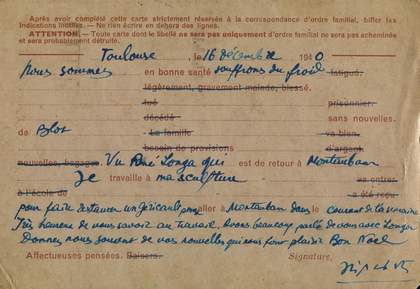 Après avoir complété cette carte strictement réservée à la correspondance d'ordre familial, biffer les
indications inutiles. — Ne rien écrire en dehors des lignes.
ATTENTION. — Toute carte dont le libellé ne sera pas uniquement d'ordre familial ne sera pas acheminée
et sera probablement détruite.
Toulouse, le 16 décembre 1940
Nous sommes en bonne santé souffrons du froid fatigué.
légèrement, gravement malade, blessé.
tué prisonnier.
décédé sans nouvelles.
de Blot La famille va bien.
besoin de provisions d'argent.
nouvelles, bagages. Vu René Longa qui est de retour à Montauban
Je travaille à ma sculpture va entrer
à l'école de a été reçu
pour faire restaurer un Géricault pour aller à Montauban dans le courant de la semaine
Très heureux de vous savoir au travail. Avons beaucoup parlé de vous avec Longa
Donnez nous souvent de vos nouvelles qui nous font plaisir Bon Noël
Affectueuses pensées. Baisers. Signature,